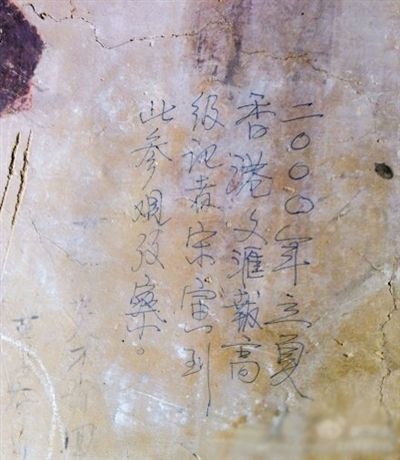 二〇〇〇年立夏
香港文滙報高
级记者宋寅到
此参观攷察。